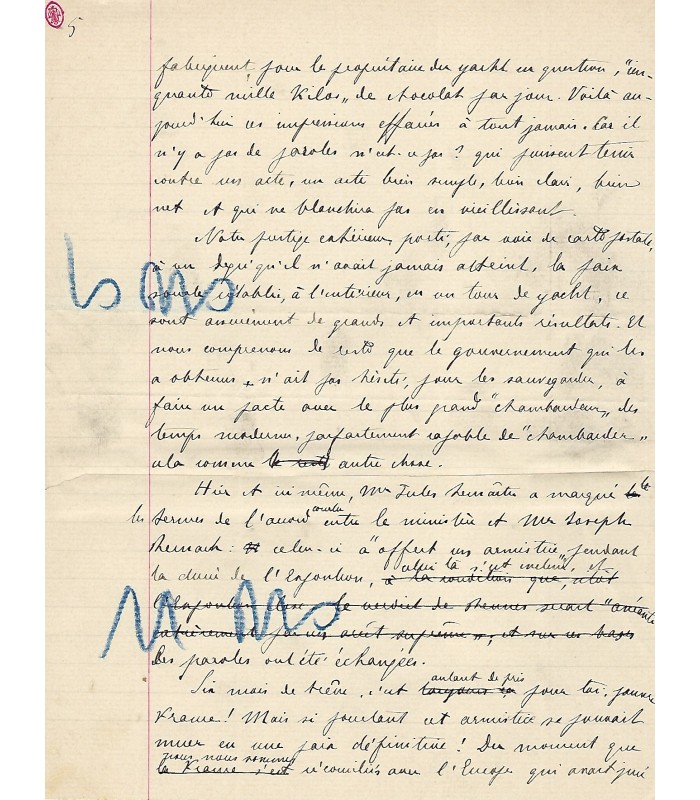 5
fabriquent, pour le propriétaire du yacht en question, "cin-
quante mille Kilos" de chocolat par jour. Voilà au-
jourd'hui ces impressions effacées à tout jamais. Car il
n'y a pas de paroles n'est-ce pas? qui puissent tenir
contre un acte, un acte bien simple, bien clair, bien
net et qui ne blanchira pas en vieillissant.
Notre prestige extérieur porté, par voie de carte postale,
à un degré qu'il n'avait jamais atteint, la paix
sociale rétablie, à l'intérieur, en un tour de yacht, ce
sont assurément de grands et importants résultats. Et
nous comprenons de reste que le gouvernement qui les
a obtenus, n'ait pas hésité, pour les sauvegarder, à
faire un pacte avec le plus grand "chambardeur" des
temps modernes, parfaitement capable de "chambarder"
cela comme le reste autre chose.
Hier et ici même, Mr Jules Lemaître a marqué le
les termes de l'accord conclu entre le ministère et Mr Joseph
Reinach: celui-ci a "offert un armistice, pendant
la durée de l'Exposition, celui-là s'est incliné", et
à la condition que, sitôt
l'Exposition close, le verdict de Rennes serait "anéanti
entièrement par un arrêt suprême", et sur ces bases
Des paroles ont été échangées.
Six mois de trêve, c'est autant de pris pour toi, pauvre
France! Mais si pourtant cet armistice se pouvait
muer en une paix définitive! Du moment que
nous nous sommes
la France s'est réconciliés avec l'Europe qui avait juré